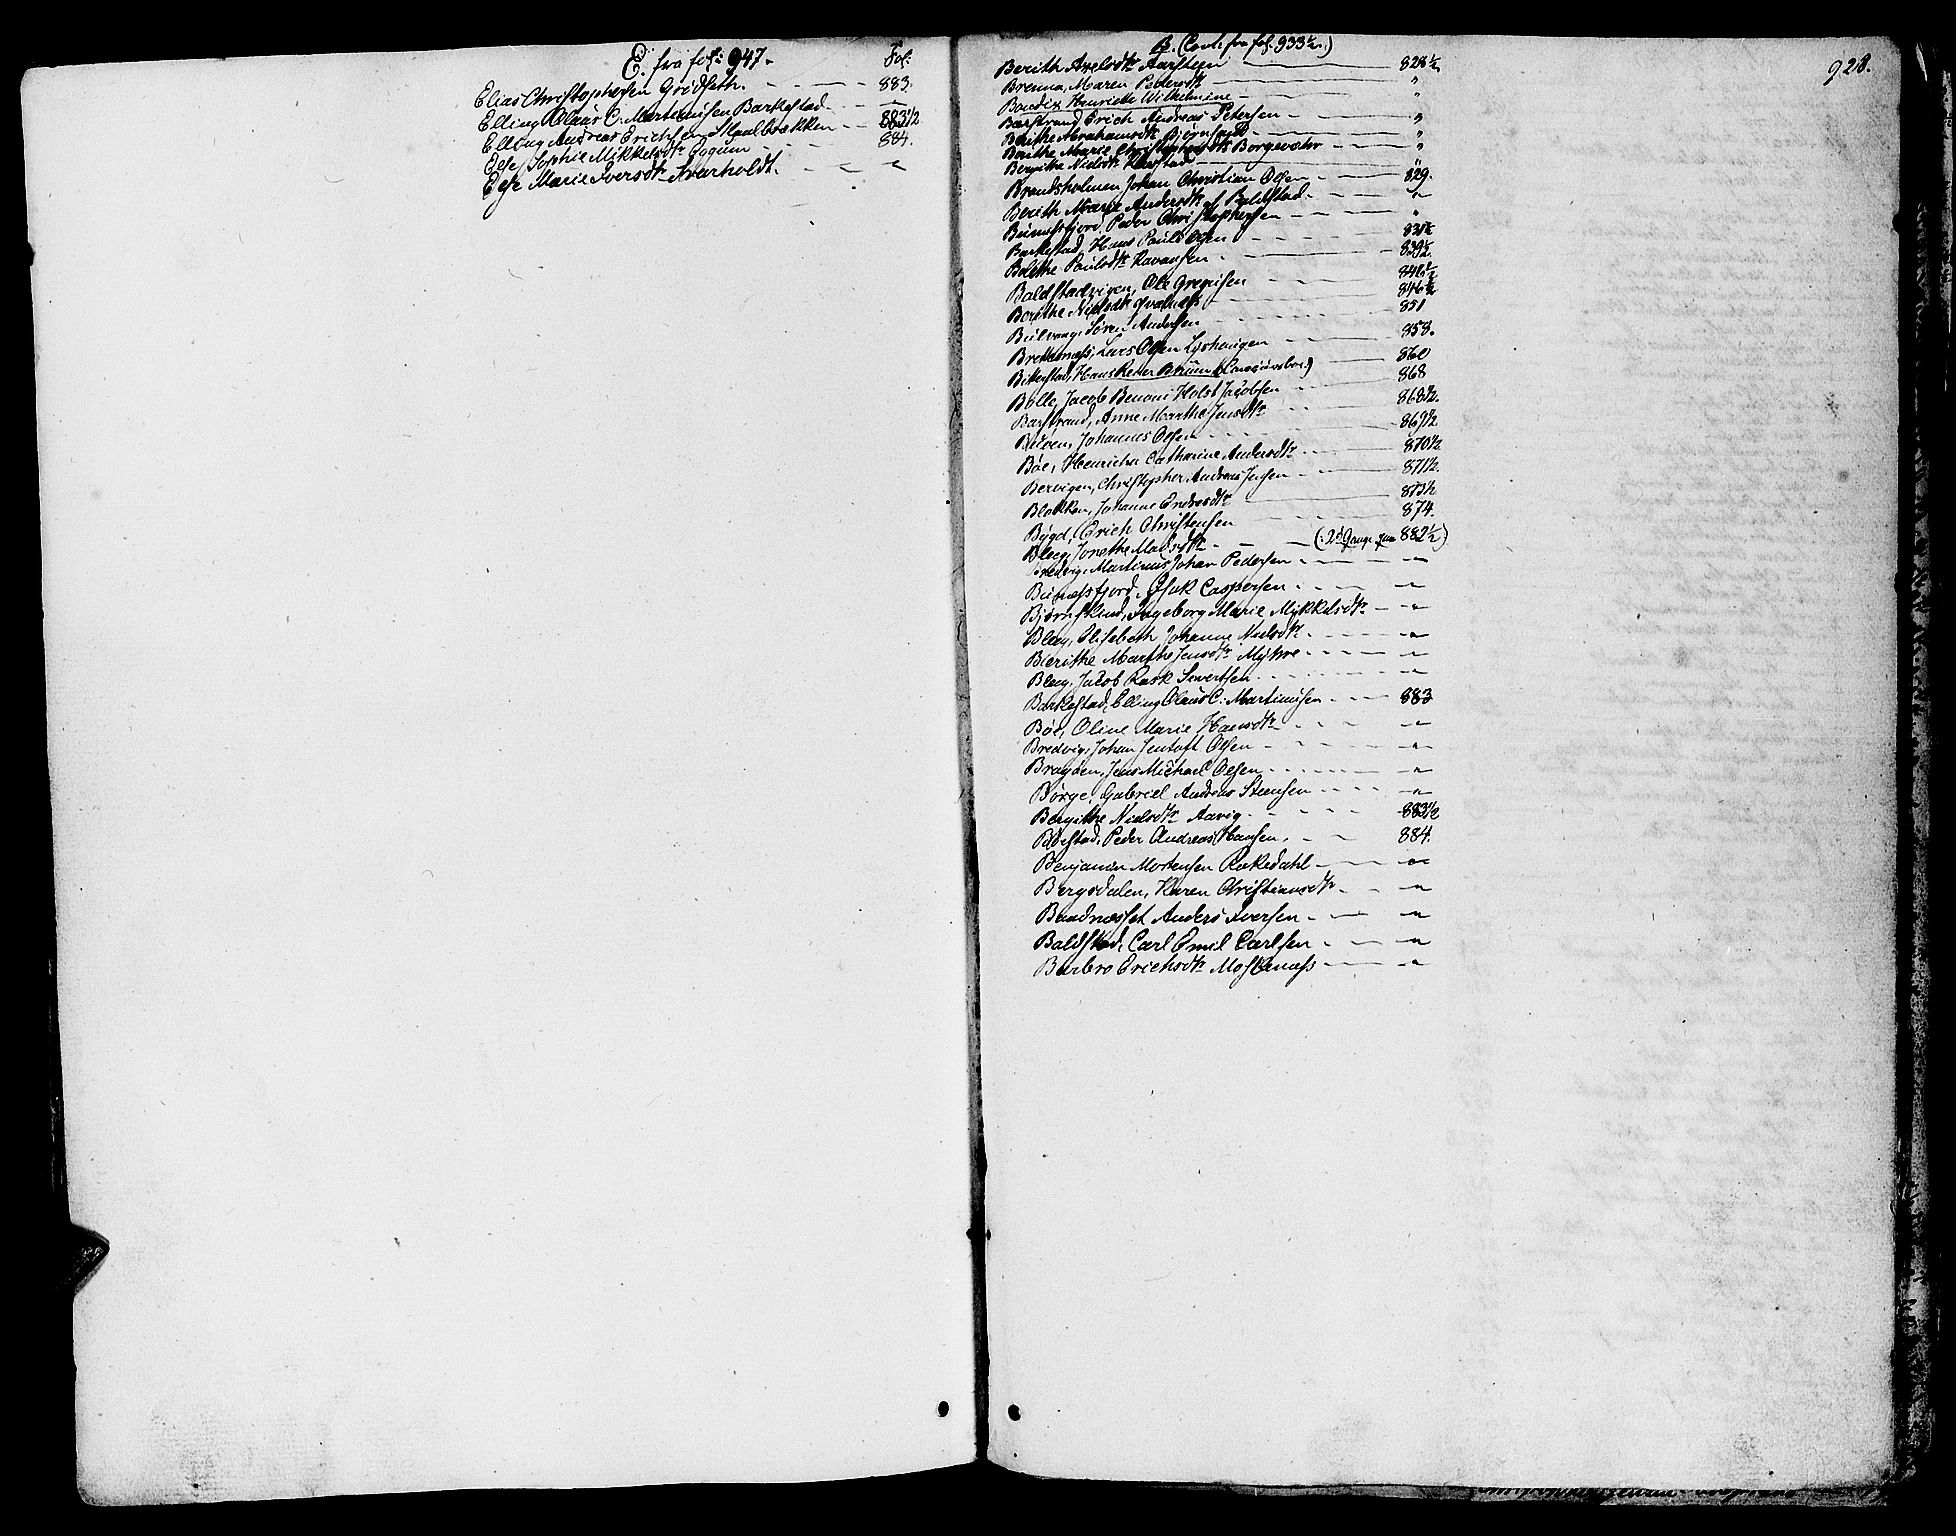 E. fra fol: 947.
Fol:
Elias Christophersen Grødseth. 883.
Elling Olaus C. Martinusen Barkestad "
Elling Andreas Erichsen Skaalbrækken 883½
Else Sophie Mikkelsdtr 884.
Else Marie Iversdtr Kvarholdt. "
928.
B. (Conti. fra fol. 933½.)
Berith Axelsdtr Aarsteen 828½
Brenna, Maren Pedersdtr "
Bendix Henriette Wilhelmine "
Barstrand Erich Andreas Petersen "
Berithe Abrahamsdtr Bjørnsand "
Berithe Marie Christophersdtr Borgevatn "
Bergitha Nielsdtr Harstad "
Brandsholmen Johan Christian Olsen 829.
Berith Marie Andersdtr af Baldstad "
Bunæsfjord, Peder Christophersen "
Barkestad, Hans Paul Olsen 831½
Berithe Paulsdtr Ravansen 839½.
Baldstadvigen, Ole Gregusen 846½
Berithe Nielsdtr 846½
Bulvaag, Søren Andersen 851
Brettesnæss, Lars Olsen Lyshaugen 858.
Bitterstad, Hans Peter Bruun 860
Bolle, Jacob Benoni Holst Jacobsen 868
Barstrand, Anne Marthe Jensdtr 868½.
Johannes Olsen 869½
Böe, Henricha Catharine Andersdtr 870½
Bervigen, Christopher Andreas Jensen 871½.
Blokken, Johanne Endresdtr 873½
Bygd, Erich Christensen 874.
Bleeg, Jonetha Madsdtr (:2d Gang. 882½)
Bredvig, Martinus Johan Pedersen "
Bunæsfjord, Isak Caspersen "
Bjørnsklund, Ingeborg Marie Mykkelsdtr "
Bleeg, Elisabeth Johanne Nielsdtr "
Berithe Marthe Jensdtr Mykre "
Bleeg, Jacob Rask Sivertsen "
Barkestad, Elling Olaus C. Martinusen 883
Böe, Oline Marie Hansdtr "
Bredvig, Johan Jentoft Olsen "
Brayden, Jens Michael Olsen "
Börge, Gabriel Andreas Steensen "
Bergithe Nielsdtr Aavig 883½
Böestad, Peder Andreas Hansen 884.
Benjamin Mortensen Rækedahl "
Bergsdalen, Karen Christiansdtr "
Baadnæsset Anders Iversen "
Baldstad, Carl Emil Carlsen "
Barbro Erichsdtr Moskenæss "